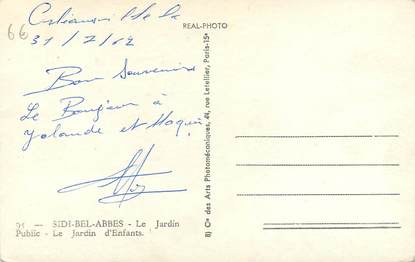 6€
REAL-PHOTO
le
31/7/62
Bon Souvenir
Le Bonjour à
Yolande et
91 — SIDI-BEL-ABBES - Le Jardin
Public - Le Jardin d'Enfants.
8) Cie des Arts Photomécaniques, 44, rue Letellier, Paris-15e